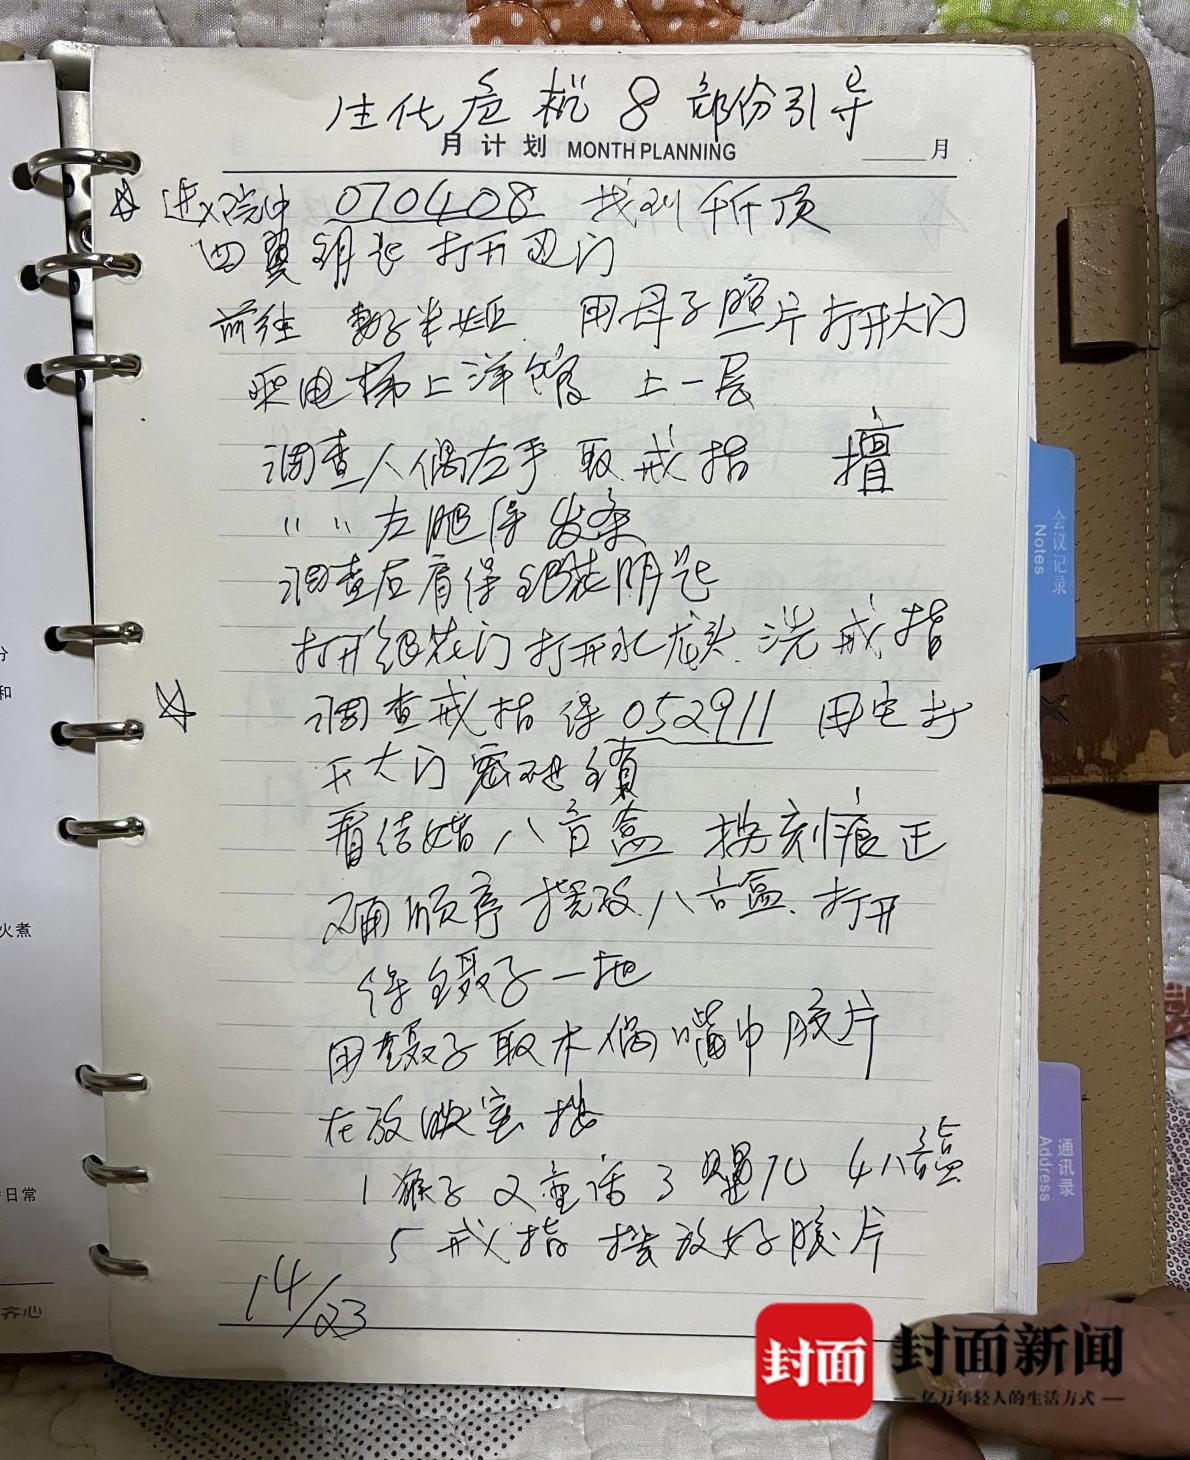 生化危机 8 部份引导
月计划 MONTH PLANNING ____月
☆ 进入院中 070408 找到千斤顶
四翼钥匙 打开卫门
前往 用母子照片打开大门
乘电梯上洋馆 上一层
调查人偶左手 取戒指
〃 〃 左腿得 发条
调查后肩得银装钥匙
打开银花门 打开水龙头 洗戒指
☆ 调查戒指 得 052911 用它打
开大门密码锁
看结婚八音盒 按刻痕正
确顺序 摆放八音盒 打开
得镊子一把
用镊子取木偶嘴中胶片
在放映室按
1 猴子 2 童话 3 4 八音盒
5 戒指 摆放好胶片
14/23
会议记录
Notes
通讯录
Address
分
和
火煮
日常
齐心
封面
封面新闻
亿万年轻人的生活方式